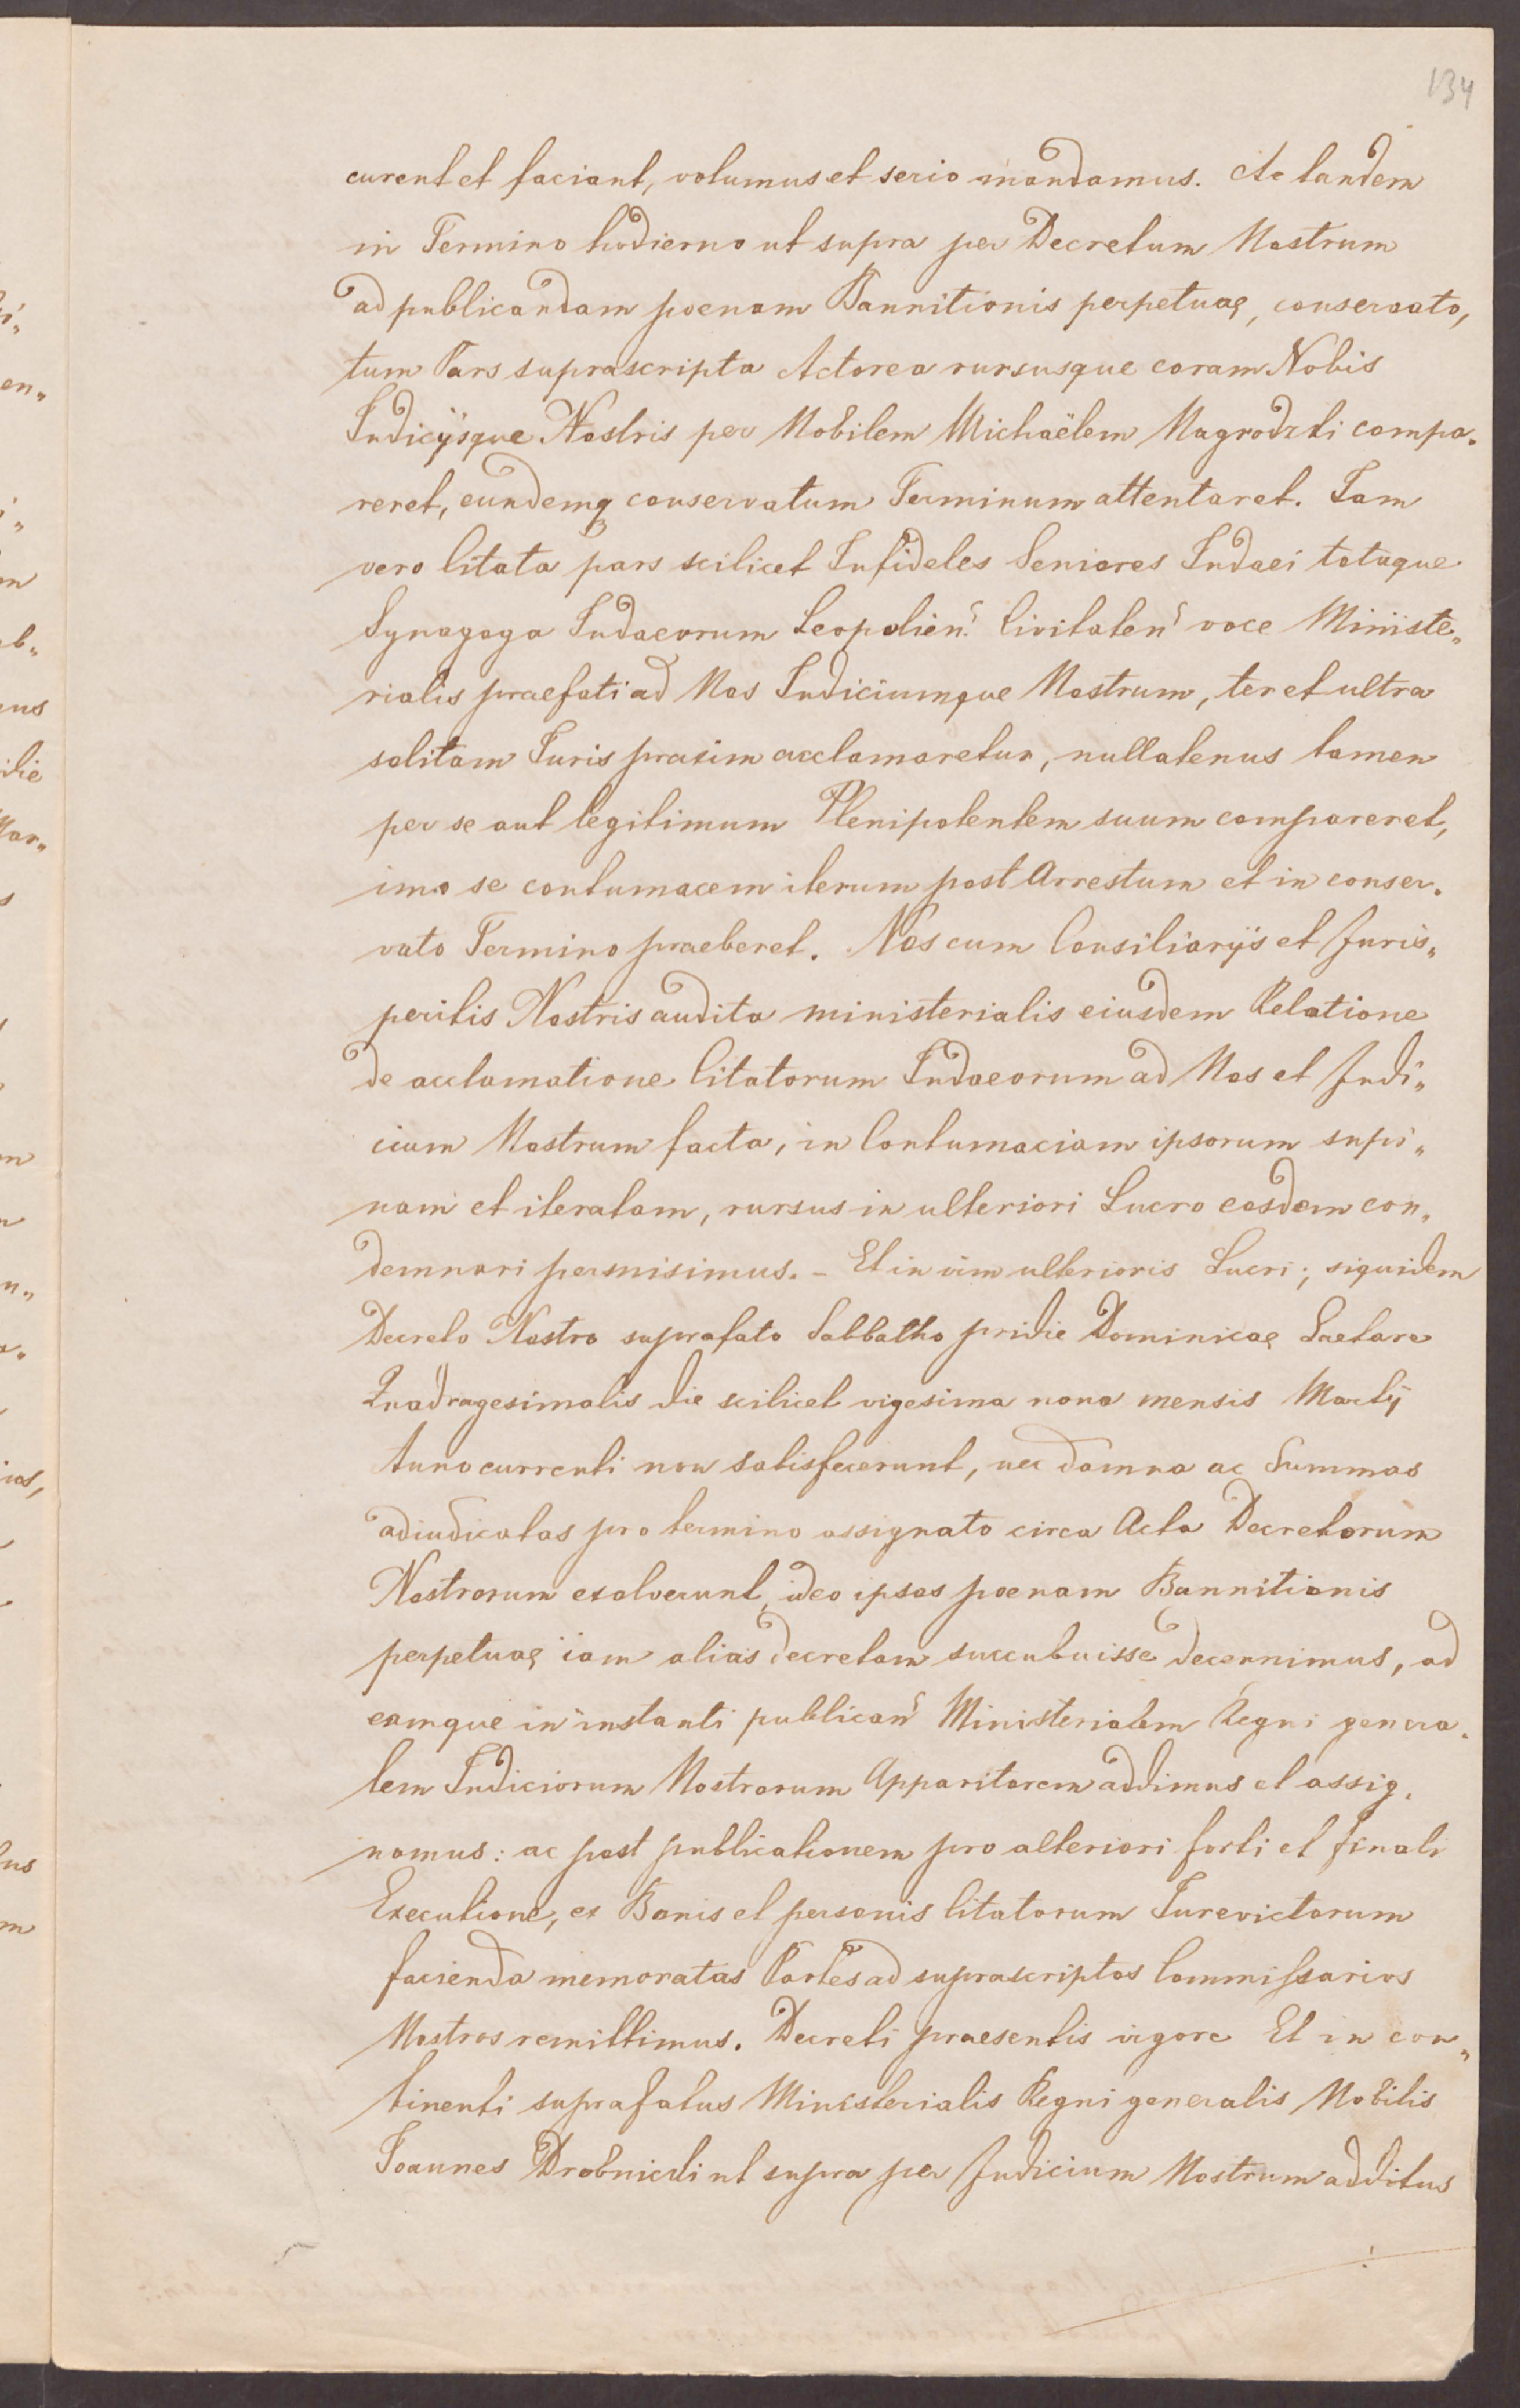 134
curent et faciant, volumus et serio mandamus. Ac tandem
in Termino hodierno ut supra per Decretum Nostrum
ad publicandam poenam Bannitionis perpetuae, conservato,
tum Pars suprascripta Actorea rursusque coram Nobis
Judicijsque Nostris per Nobilem Michaëlem Nagrodzki compa„
reret, eundemq conservatum Terminum attentaret. Jam
vero Citata pars scilicet Infideles Seniores Judaei totaque
Synagoga Judaeorum Leopolien: Civitaten: voce Ministe„
rialis praefati ad Nos Judiciumque Nostrum, ter et ultra
solitam Juris praxim acclamaretur, nullatenus tamen
per se aut legitimum Plenipotentem suum compareret,
imo se contumacem iterum post Arrestum et in conser„
vato Termino praeberet. Nos cum Consiliarijs et Juris„
peritis Nostris audita ministerialis eiusdem Relatione
de acclamatione Citatorum Judaeorum ad Nos et Judi„
cium Nostrum facta, in Contumaciam ipsorum supi„
nam et iteratam, rursus in ulteriori Lucro eosdem con„
demnari permisimus. – Et in vim ulterioris Lucri; siquidem
Decreto Nostro suprafato Sabbatho pridie Dominicae Laetare
Quadragesimalis die scilicet vigesima nona mensis Martij
Anno currenti non satisfecerunt, nec damna ac Summas
adiudicatas pro termino assignato circa Acta Decretorum
Nostrorum exolverunt, ideo ipsos poenam Bannitionis
perpetuae iam alias decretam succubuisse decernimus, ad
eamque in instanti publican: Ministerialem Regni genera„
lem Judiciorum Nostrorum Apparitorem addimus et assig„
namus: ac post publicationem pro alteriori forti et finali
Executione, ex Bonis et personis Citatorum Jurevictorum
facienda memoratas Partes ad suprascriptos Commissarios
Nostros remittimus. Decreti praesentis vigore Et in con„
tinenti suprafatus Ministerialis Regni generalis Nobilis
Joannes Drobnicki ut supra per Judicium Nostrum additus